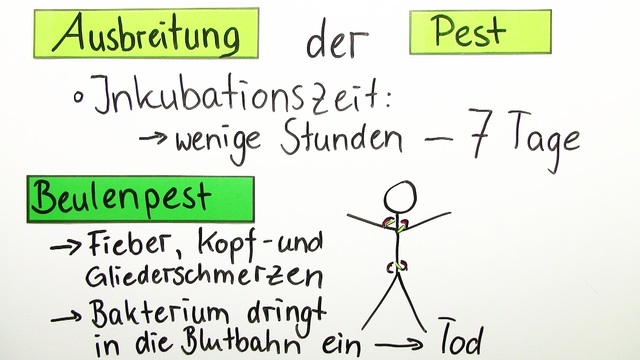 Ausbreitung der Pest
° Inkubationszeit:
→ wenige Stunden – 7 Tage
Beulenpest
→ Fieber, Kopf- und
Gliederschmerzen
→ Bakterium dringt
in die Blutbahn ein → Tod